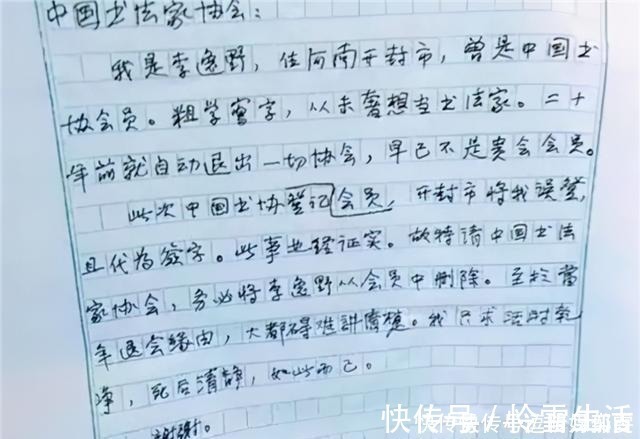 中国书法家协会：
我是李逸野，住河南开封市，曾是中国书
协会员。粗学写字，从未奢想当书法家。二十
年前就自动退出一切协会，早已不是贵会会员。
此次中国书协登记会员，开封市将我误登，
且代为签字。此事已经证实。故特请中国书法
家协会，务必将李逸野从会员中删除。至於当
年退会缘由，大都碍难讲情梗。我只求活时乾
净，死后清静，如此而已。
谢谢。
快传号/怆雷生活